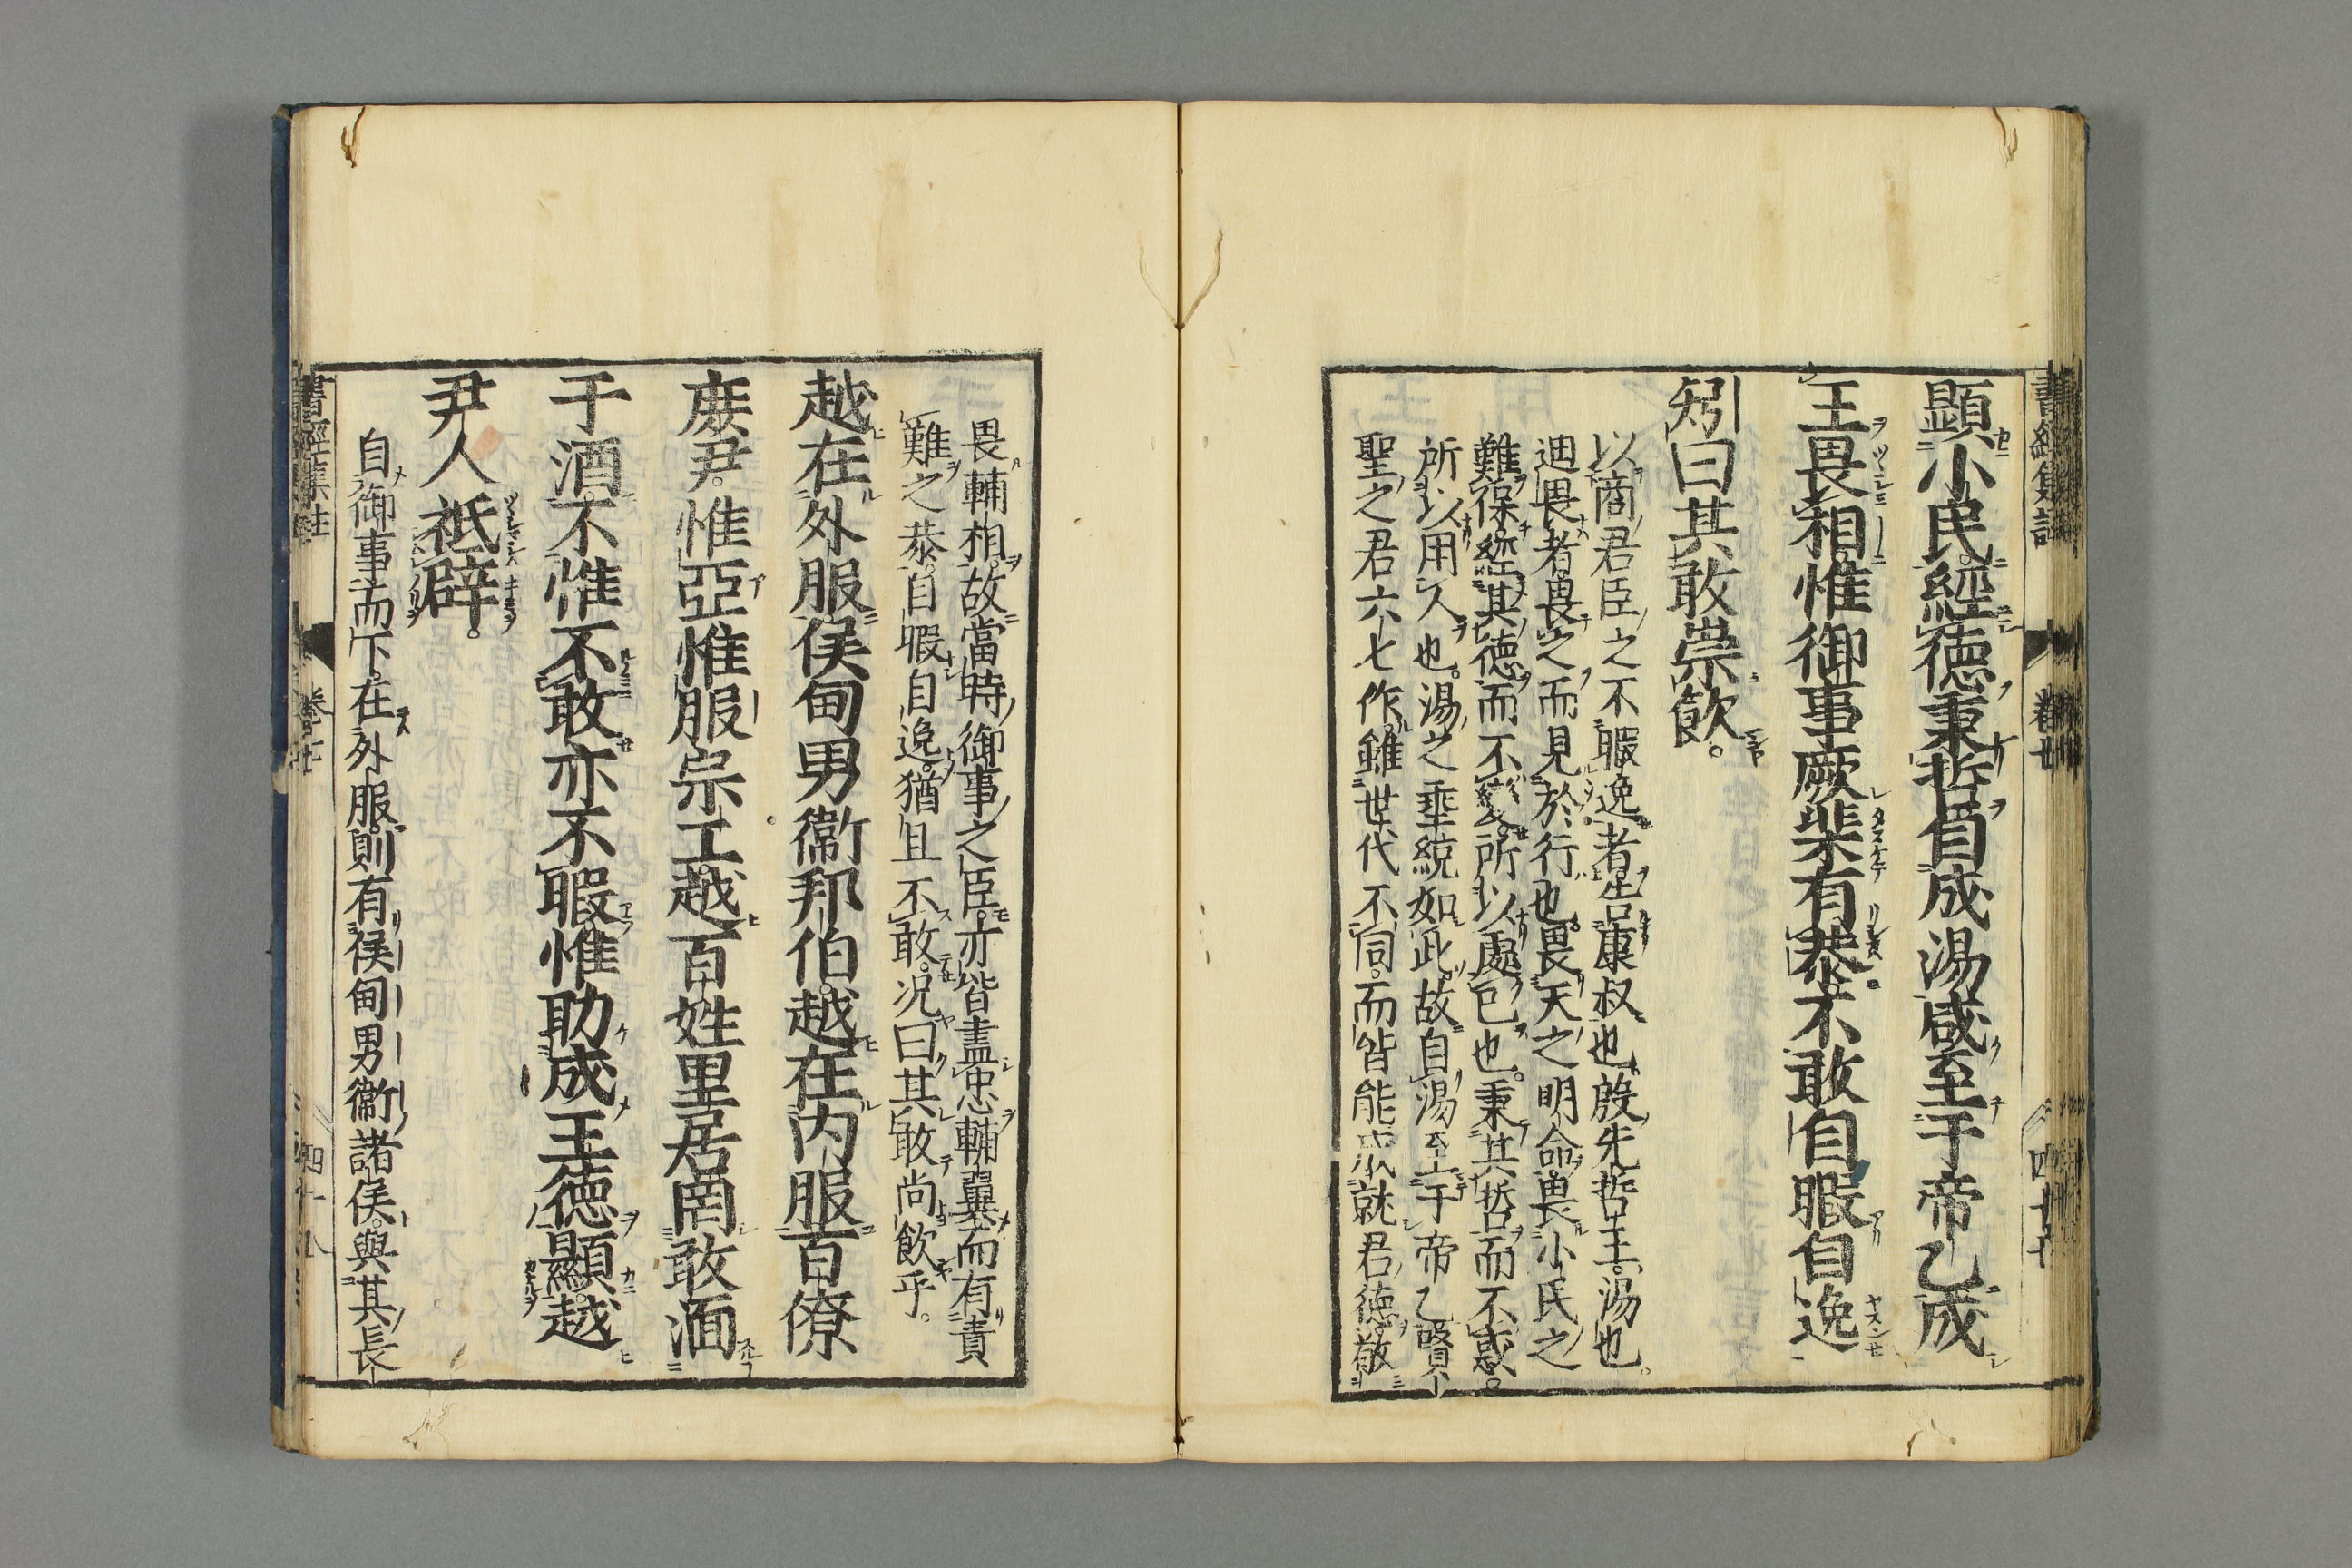 顕小民經徳秉哲自成湯咸至于帝乙成
王畏相惟御事厥棐有恭不敢自暇自逸
矧曰其敢崇飲。
以商君臣之不暇逸者告康叔也殷先哲王湯也。
迪畏者畏之而見於行也畏天之明命畏小民之
難保經其徳而不變所以處已也。秉其哲而不惑。
所以用人也。湯之垂統如此故自湯至于帝乙賢
聖之君六七作雖世代不同。而皆能成就君徳敬
畏輔相。故當時御事之臣亦皆盡忠輔翼而有責
難之恭。自暇自逸。猶且不敢。况曰其敢尚飲乎。
越在外服侯甸男衞邦伯越在内服百僚
庶尹。惟亞惟服宗工越百姓里居罔敢湎
于酒不惟不敢亦不暇惟助成王徳顯越
尹人祗辟。
自御事而下。在外服則有侯甸男衞諸侯。與其長
書經集註
卷七